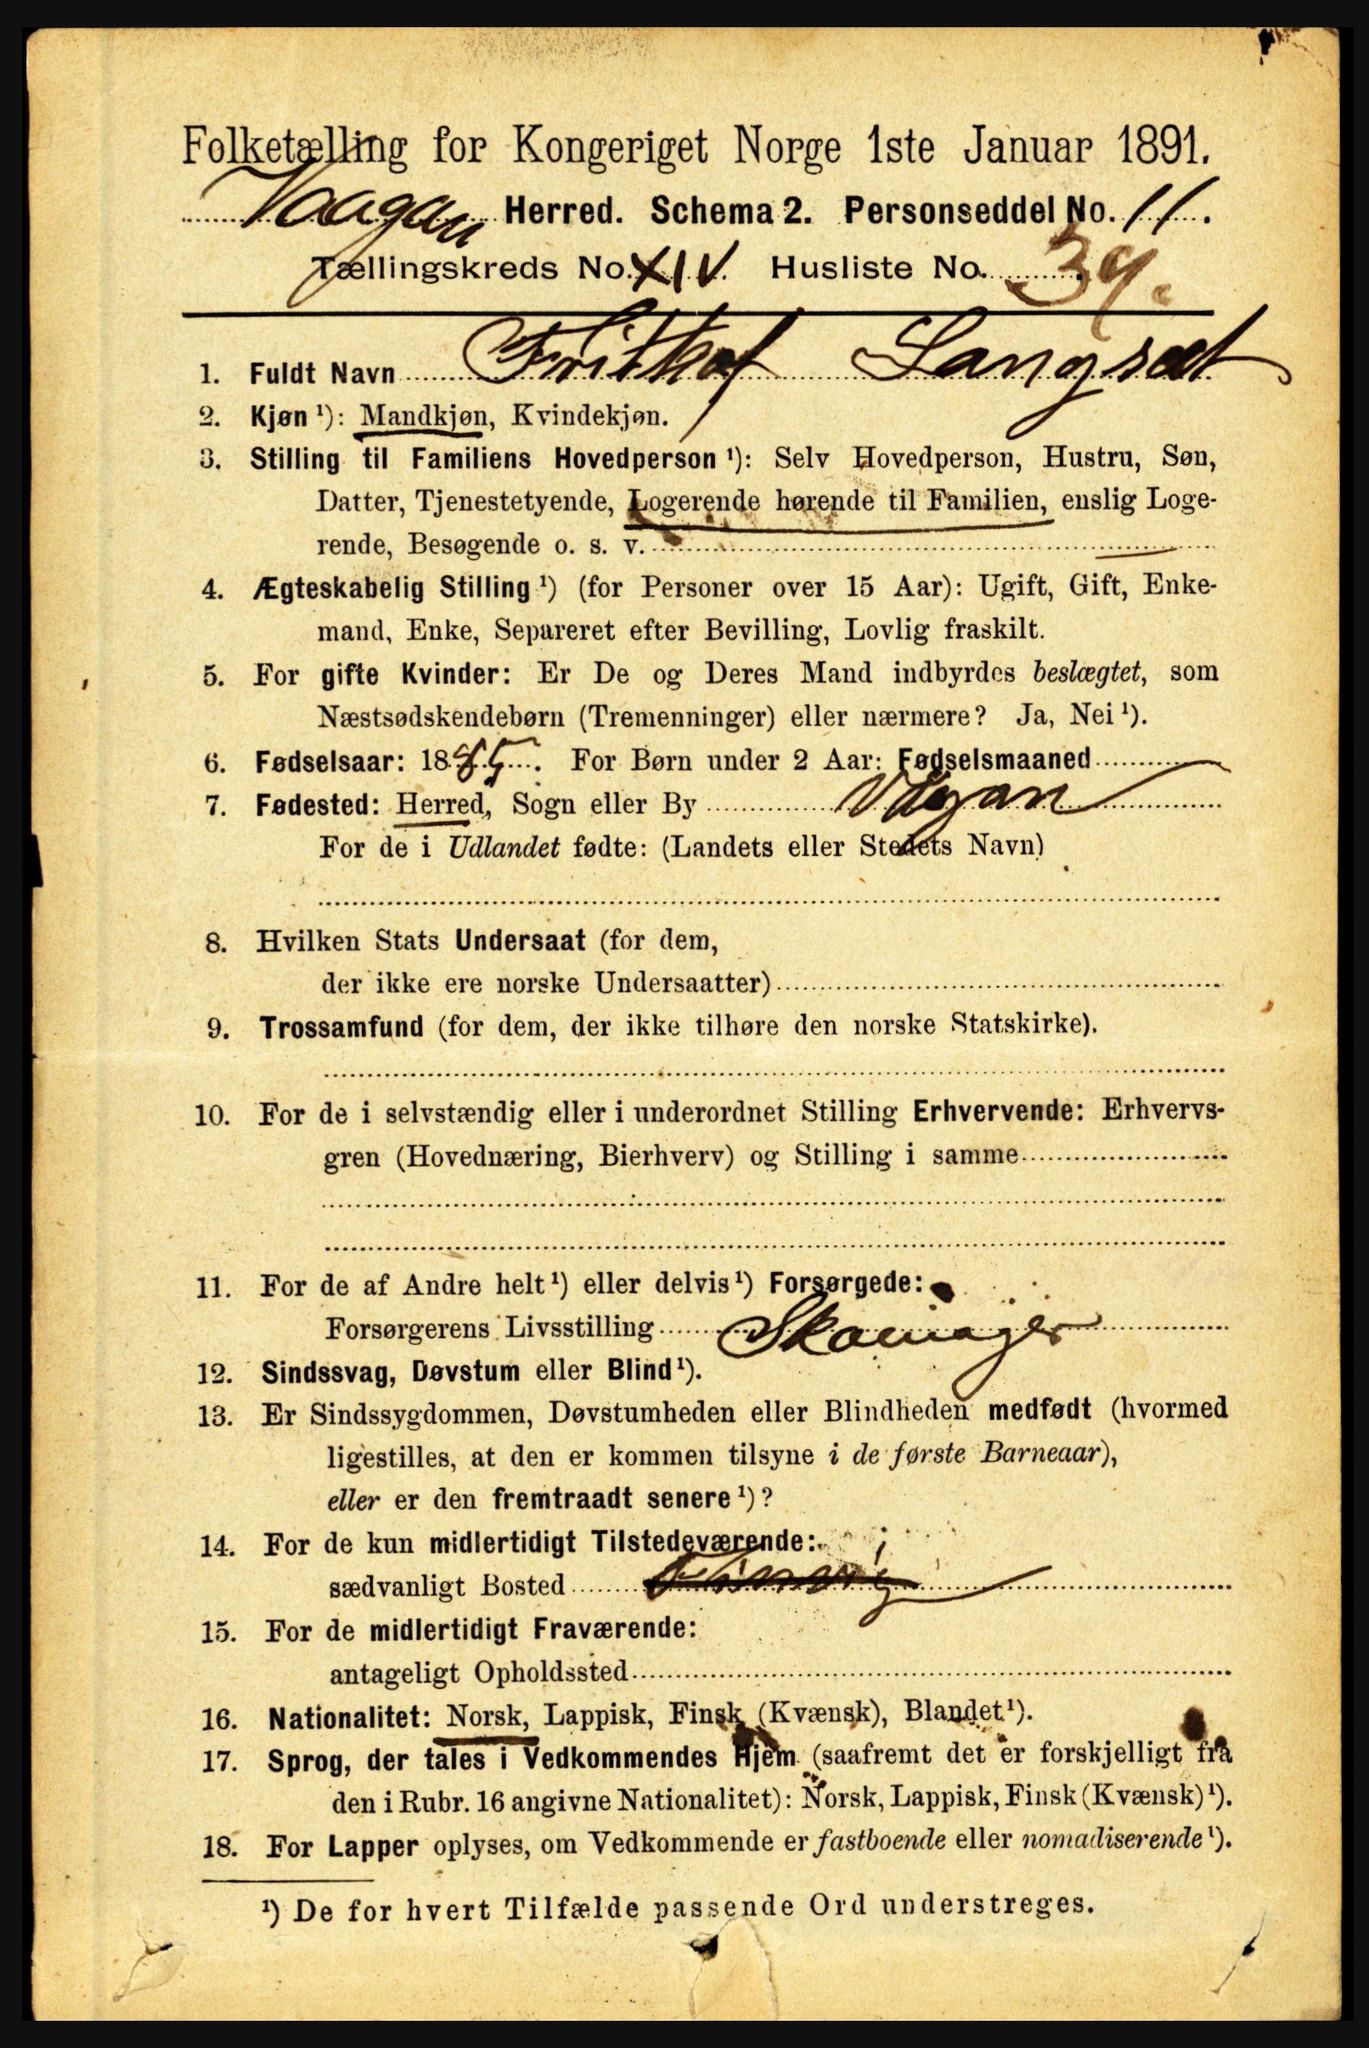 Folketælling for Kongeriget Norge 1ste Januar 1891.
Vaagan Herred. Schema 2. Personseddel No. 11.
Tællingskreds No. XIV. Husliste No. 39.
1. Fuldt Navn Frithof Langset
2. Kjøn ¹): Mandkjøn, Kvindekjøn.
3. Stilling til Familiens Hovedperson ¹): Selv Hovedperson, Hustru, Søn,
Datter, Tjenestetyende, Logerende hørende til Familien, enslig Loge-
rende, Besøgende o. s. v.
4. Ægteskabelig Stilling ¹) (for Personer over 15 Aar): Ugift, Gift, Enke-
mand, Enke, Separeret efter Bevilling, Lovlig fraskilt.
5. For gifte Kvinder: Er De og Deres Mand indbyrdes beslægtet, som
Næstsødskendebørn (Tremenninger) eller nærmere? Ja, Nei ¹).
6. Fødselsaar: 1885. For Børn under 2 Aar: Fødselsmaaned
7. Fødested: Herred, Sogn eller By Vågan
For de i Udlandet fødte: (Landets eller Stedets Navn)
8. Hvilken Stats Undersaat (for dem,
der ikke ere norske Undersaatter)
9. Trossamfund (for dem, der ikke tilhøre den norske Statskirke).
10. For de i selvstændig eller i underordnet Stilling Erhvervende: Erhvervs-
gren (Hovednæring, Bierhverv) og Stilling i samme
11. For de af Andre helt ¹) eller delvis ¹) Forsørgede:
Forsørgerens Livsstilling Skomager
12. Sindssvag, Døvstum eller Blind ¹).
13. Er Sindssygdommen, Døvstumheden eller Blindheden medfødt (hvormed
ligestilles, at den er kommen tilsyne i de første Barneaar),
eller er den fremtraadt senere ¹)?
14. For de kun midlertidigt Tilstedeværende:
sædvanligt Bosted
15. For de midlertidigt Fraværende:
antageligt Opholdssted
16. Nationalitet: Norsk, Lappisk, Finsk (Kvænsk), Blandet ¹).
17. Sprog, der tales i Vedkommendes Hjem (saafremt det er forskjelligt fra
den i Rubr. 16 angivne Nationalitet): Norsk, Lappisk, Finsk (Kvænsk) ¹).
18. For Lapper oplyses, om Vedkommende er fastboende eller nomadiserende ¹).
¹) De for hvert Tilfælde passende Ord understreges.